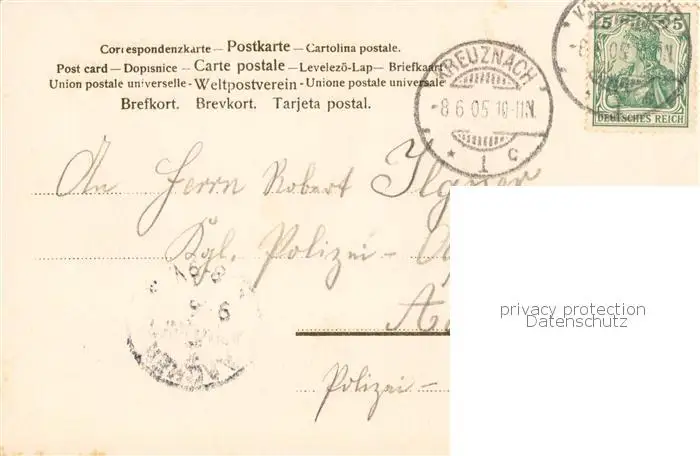 Correspondenzkarte — Postkarte — Cartolina postale.
Post card — Dopisnice — Carte postale — Levelező-Lap — Briefkaart
Union postale universelle - Weltpostverein - Unione postale universale
Brefkort. Brevkort. Tarjeta postal.
KREUZNACH
-8 6 05 10-11N.
* 1 c
5 5
DEUTSCHES REICH
An Herrn Robert Ilgner
Kgl. Polizei-
privacy protection
Datenschutz
Polizei-